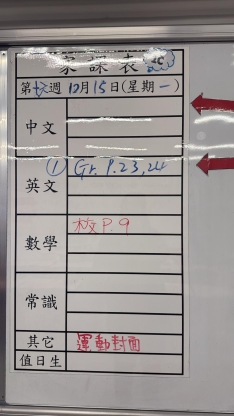 家課表 2C
第十六週 12月15日(星期一)
中文
① Gr. P.23,24
英文
數學 校P.9
常識
其它 運動封面
值日生